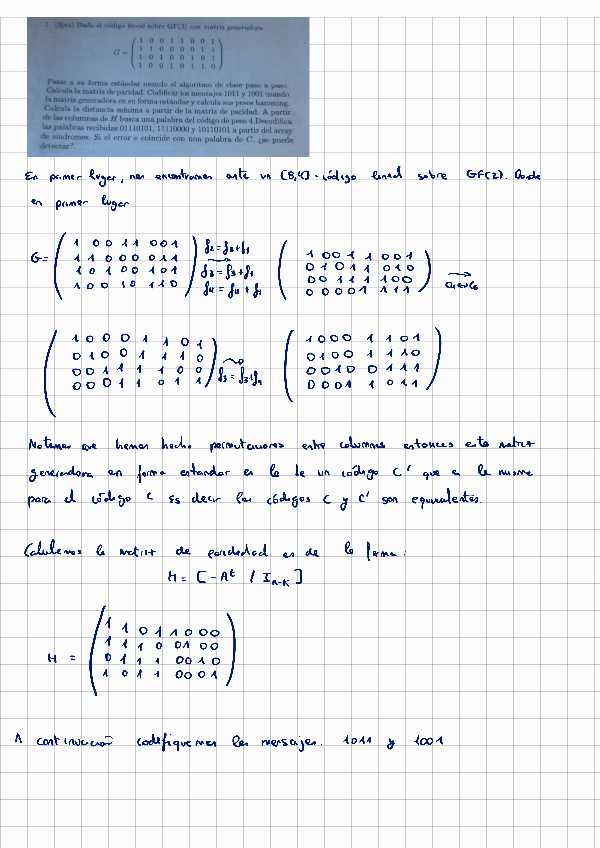 1. (3pts) Dado el código lineal sobre GF(2) con matriz generadora
1 0 0 1 1 0 0 1
1 1 0 0 0 0 1 1
G = 1 0 1 0 0 1 0 1
1 0 0 1 0 1 1 0
Pasar a su forma estándar usando el algoritmo de clase paso a paso.
Calcula la matriz de paridad. Codificar los mensajes 1011 y 1001 usando
la matriz generadora en su forma estándar y calcula sus pesos hamming.
Calcula la distancia mínima a partir de la matriz de paridad. A partir
de las columnas de H busca una palabra del código de peso 4.Decodifica
las palabras recibidas 01110101, 11110000 y 10110101 a partir del array
de síndromes. Si el error e coincide con una palabra de C, ¿se puede
detectar?.
En primer lugar, nos encontramos ante un [8,4]-código lineal sobre GF(2). Donde
en primer lugar
1 0 0 1 1 0 0 1 f2 = f2+f1 1 0 0 1 1 0 0 1
G= 1 1 0 0 0 0 1 1 0 1 0 1 1 0 1 0
1 0 1 0 0 1 0 1 f3 = f3+f1 0 0 1 1 1 1 0 0
1 0 0 1 0 1 1 0 f4 = f4+f1 0 0 0 0 1 1 1 1
1 0 0 0 1 1 0 1 1 0 0 0 1 1 0 1
0 1 0 0 1 1 1 0 0 1 0 0 1 1 1 0
0 0 1 1 1 1 0 0 f3 = f3+f4 0 0 1 0 0 1 1 1
0 0 0 1 1 0 1 1 0 0 0 1 1 0 1 1
Notemos que hemos hecho permutaciones entre columnas entonces esta matriz
generadora en forma estandar es la de un código C' que es la misma
para el código C es decir los códigos C y C' son equivalentes.
Calculemos la matriz de paridad es de la forma:
H = [-Aᵗ / I n-k]
1 1 0 1 1 0 0 0
1 1 1 0 0 1 0 0
H = 0 1 1 1 0 0 1 0
1 0 1 1 0 0 0 1
A continuación codifiquemos los mensajes. 1011 y 1001